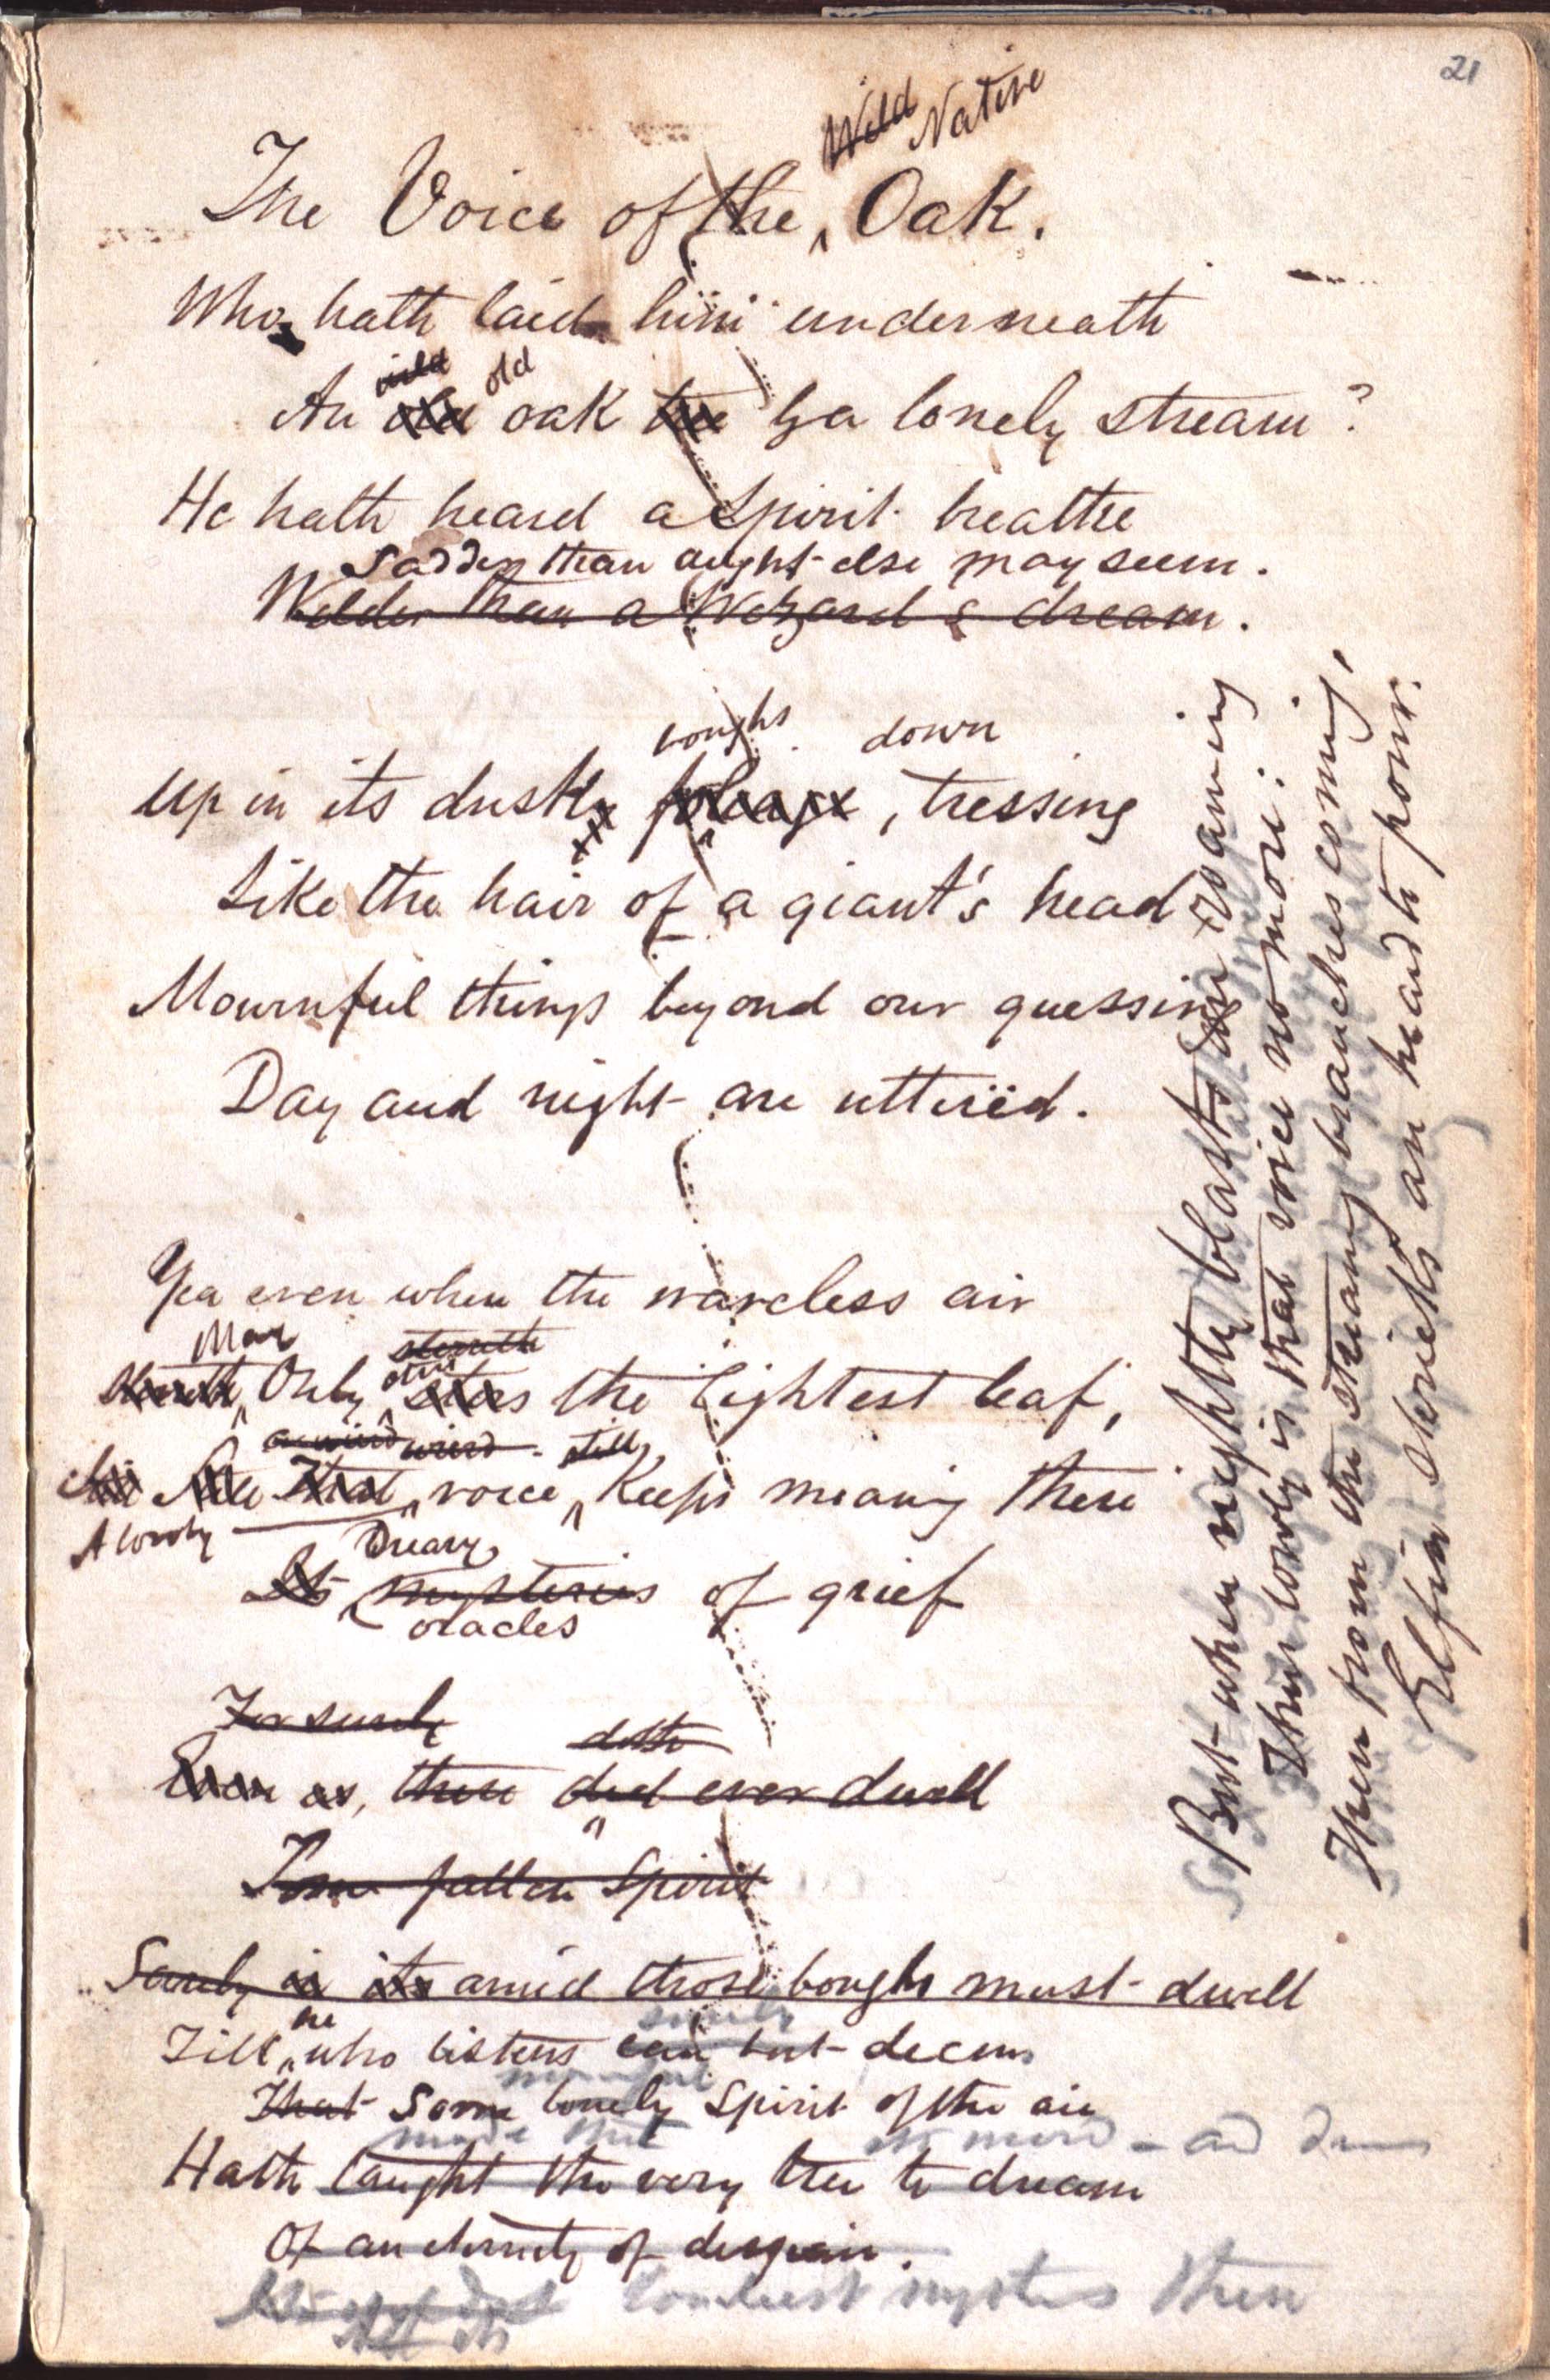 21
Wild Native
The Voice of the ‸ Oak.
Who hath laid him underneath
wild old
An old oak tree by a lonely stream?
He hath heard a Spirit breathe
Sadder than aught else may seem.
Wilder than a Wizard's dream.
boughs down
Up in its dusky foliage, tressing
Like the hair of a giant's head
Mournful things beyond our guessing
Day and night are utterëd.
Yea even when the waveless air
May stirreth
Only stirs the lightest leaf,
a weird weird still,
A lonely voice, keeps moaning there
Dreary
Its mysteries of grief
oracles
For surely
doth
Even as, there did ever dwell
Some fallen Spirit
Surely in its amid those boughs must dwell
he surely
Till who listens can but deem
mournful
That Some lonely Spirit of the air
made that
Hath taught the very tree to dream
Of an eternity of despair.
loneliest there
But when mighty blasts are roaming
Then lonely is that voice no more:
Then from the streaming branches coming,
Elfin shrieks are heard to pour.